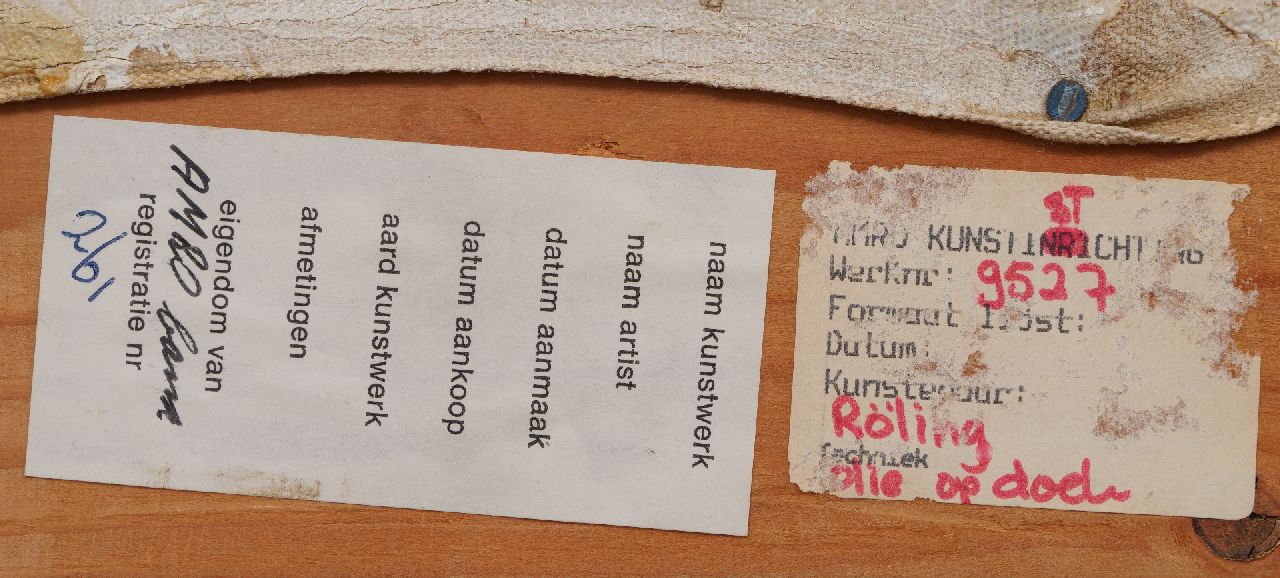 naam kunstwerk
naam artist
datum aanmaak
datum aankoop
aard kunstwerk
afmetingen
eigendom van
AMRO bank
registratie nr
ST
KUNSTINRICHT
Werknr: 9527
Formaat lijst:
Datum:
Kunstenaar:
Röling
Techniek
olie op doek